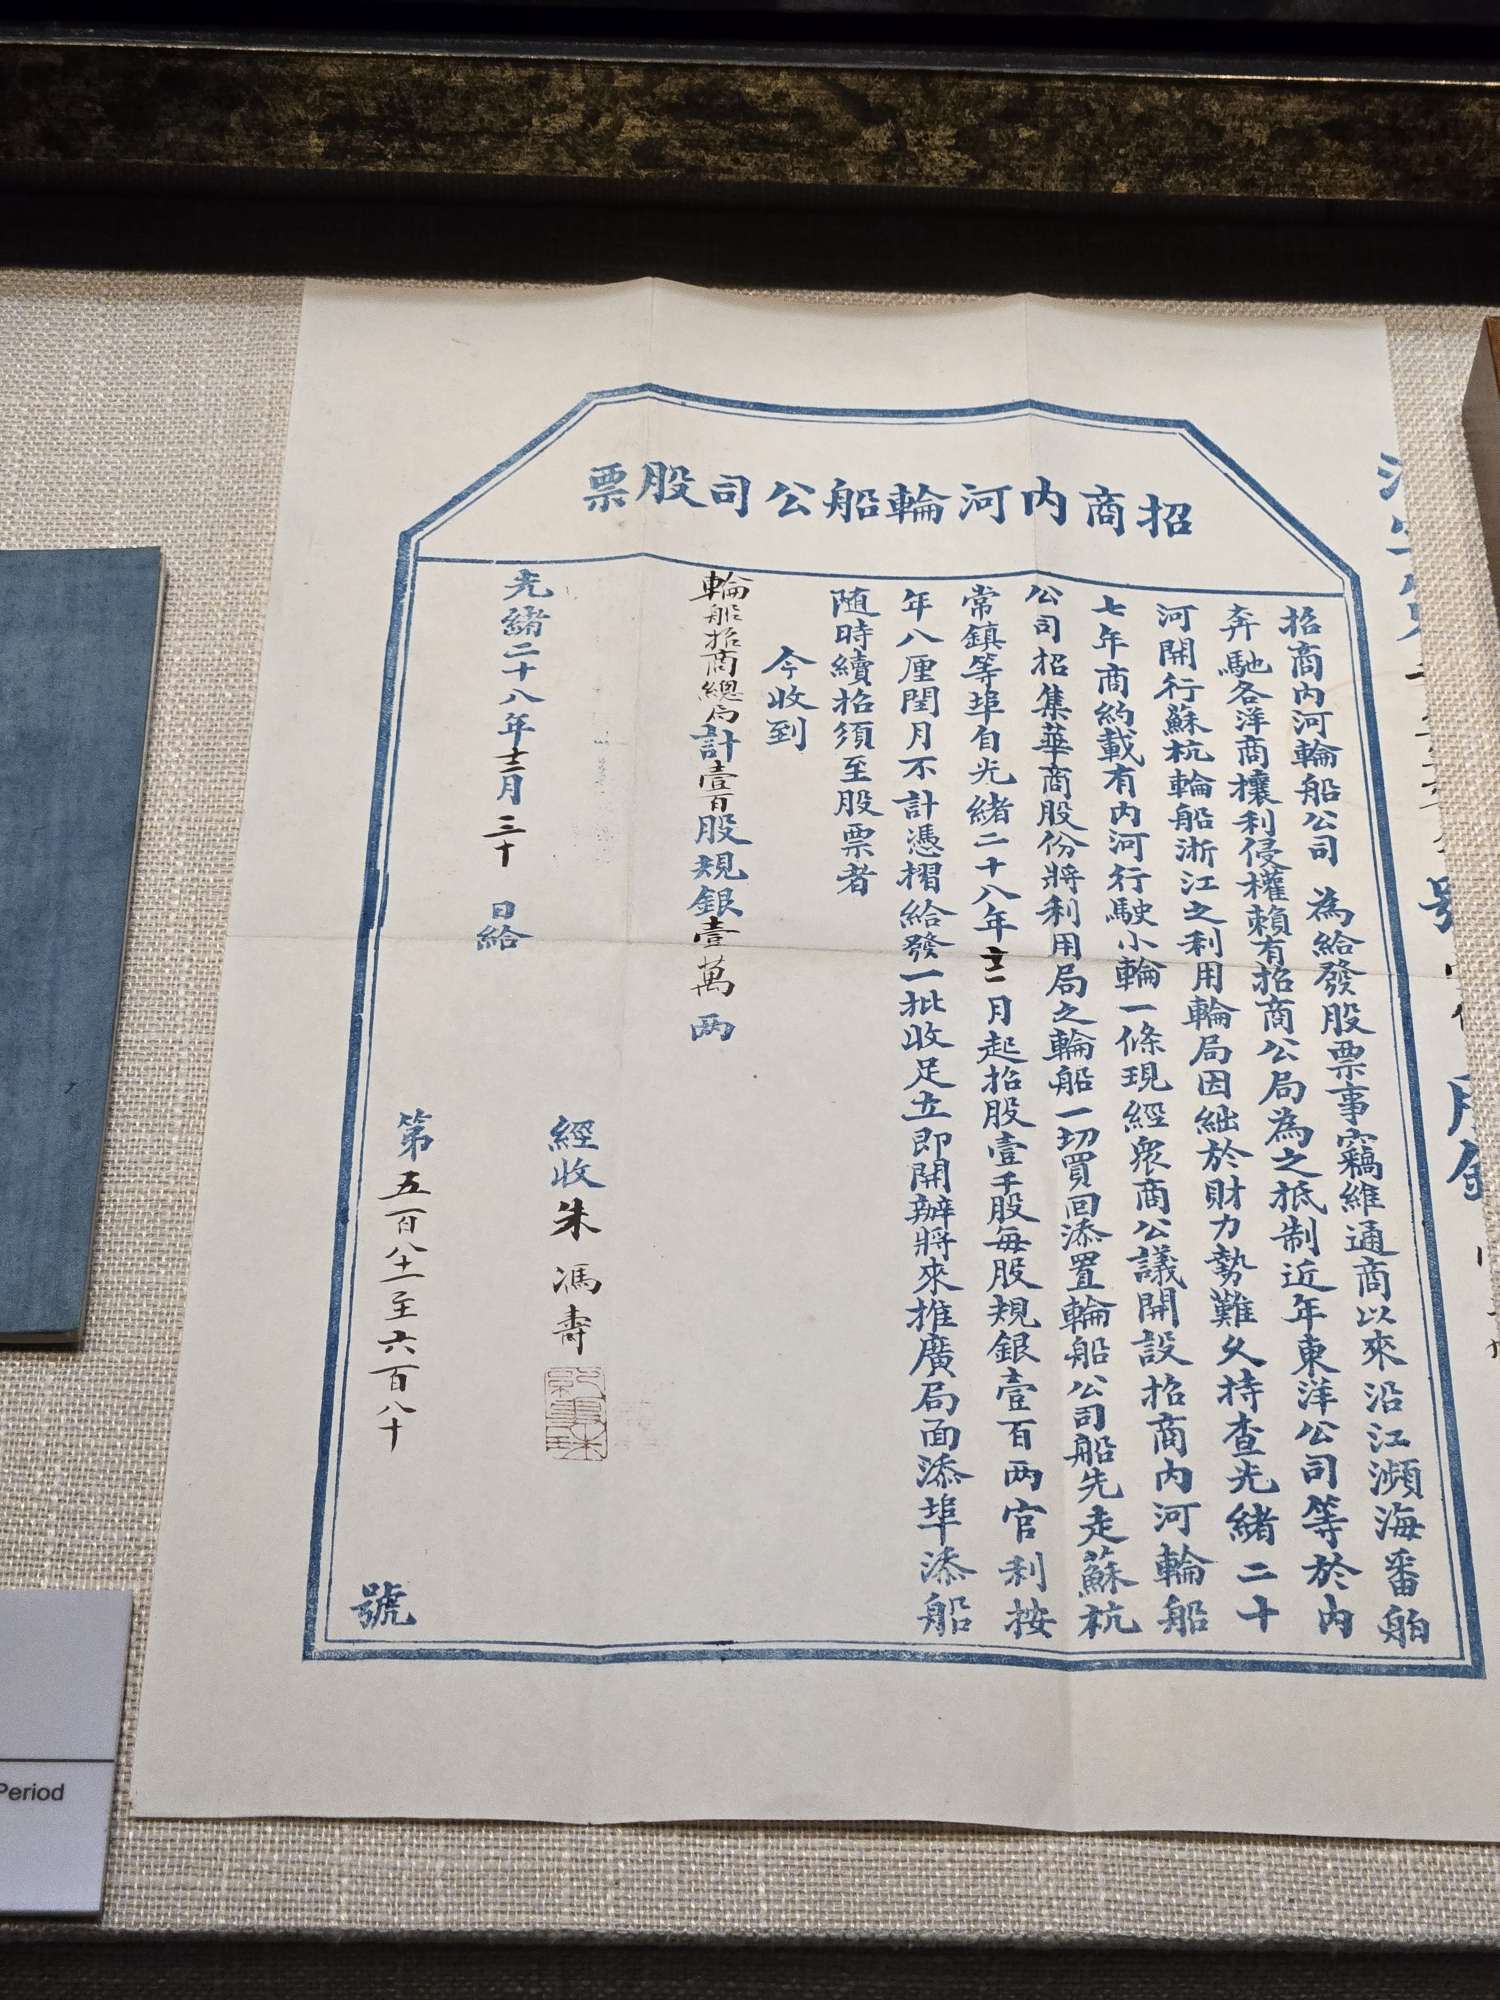 招商内河輪船公司股票
招商内河輪船公司 為給發股票事竊維通商以來沿江瀕海番舶
奔馳各洋商攘利侵權賴有招商公局為之抵制近年東洋公司等於内
河開行蘇杭輪船浙江之利用輪局因絀於財力勢難久持查光緒二十
七年商約載有内河行駛小輪一條現經衆商公議開設招商内河輪船
公司招集華商股份將利用局之輪船一切買回添置輪船公司船先走蘇杭
常鎮等埠自光緒二十八年十二月起招股壹千股每股規銀壹百两官利按
年八厘閏月不計憑摺給發一批收足立即開辦將來推廣局面添埠添船
随時續招須至股票者
今收到
輪船招商總局計壹百股規銀壹萬两
光緒二十八年十二月三十日給
經收朱馮壽
第五百八十一至六百八十號
Period